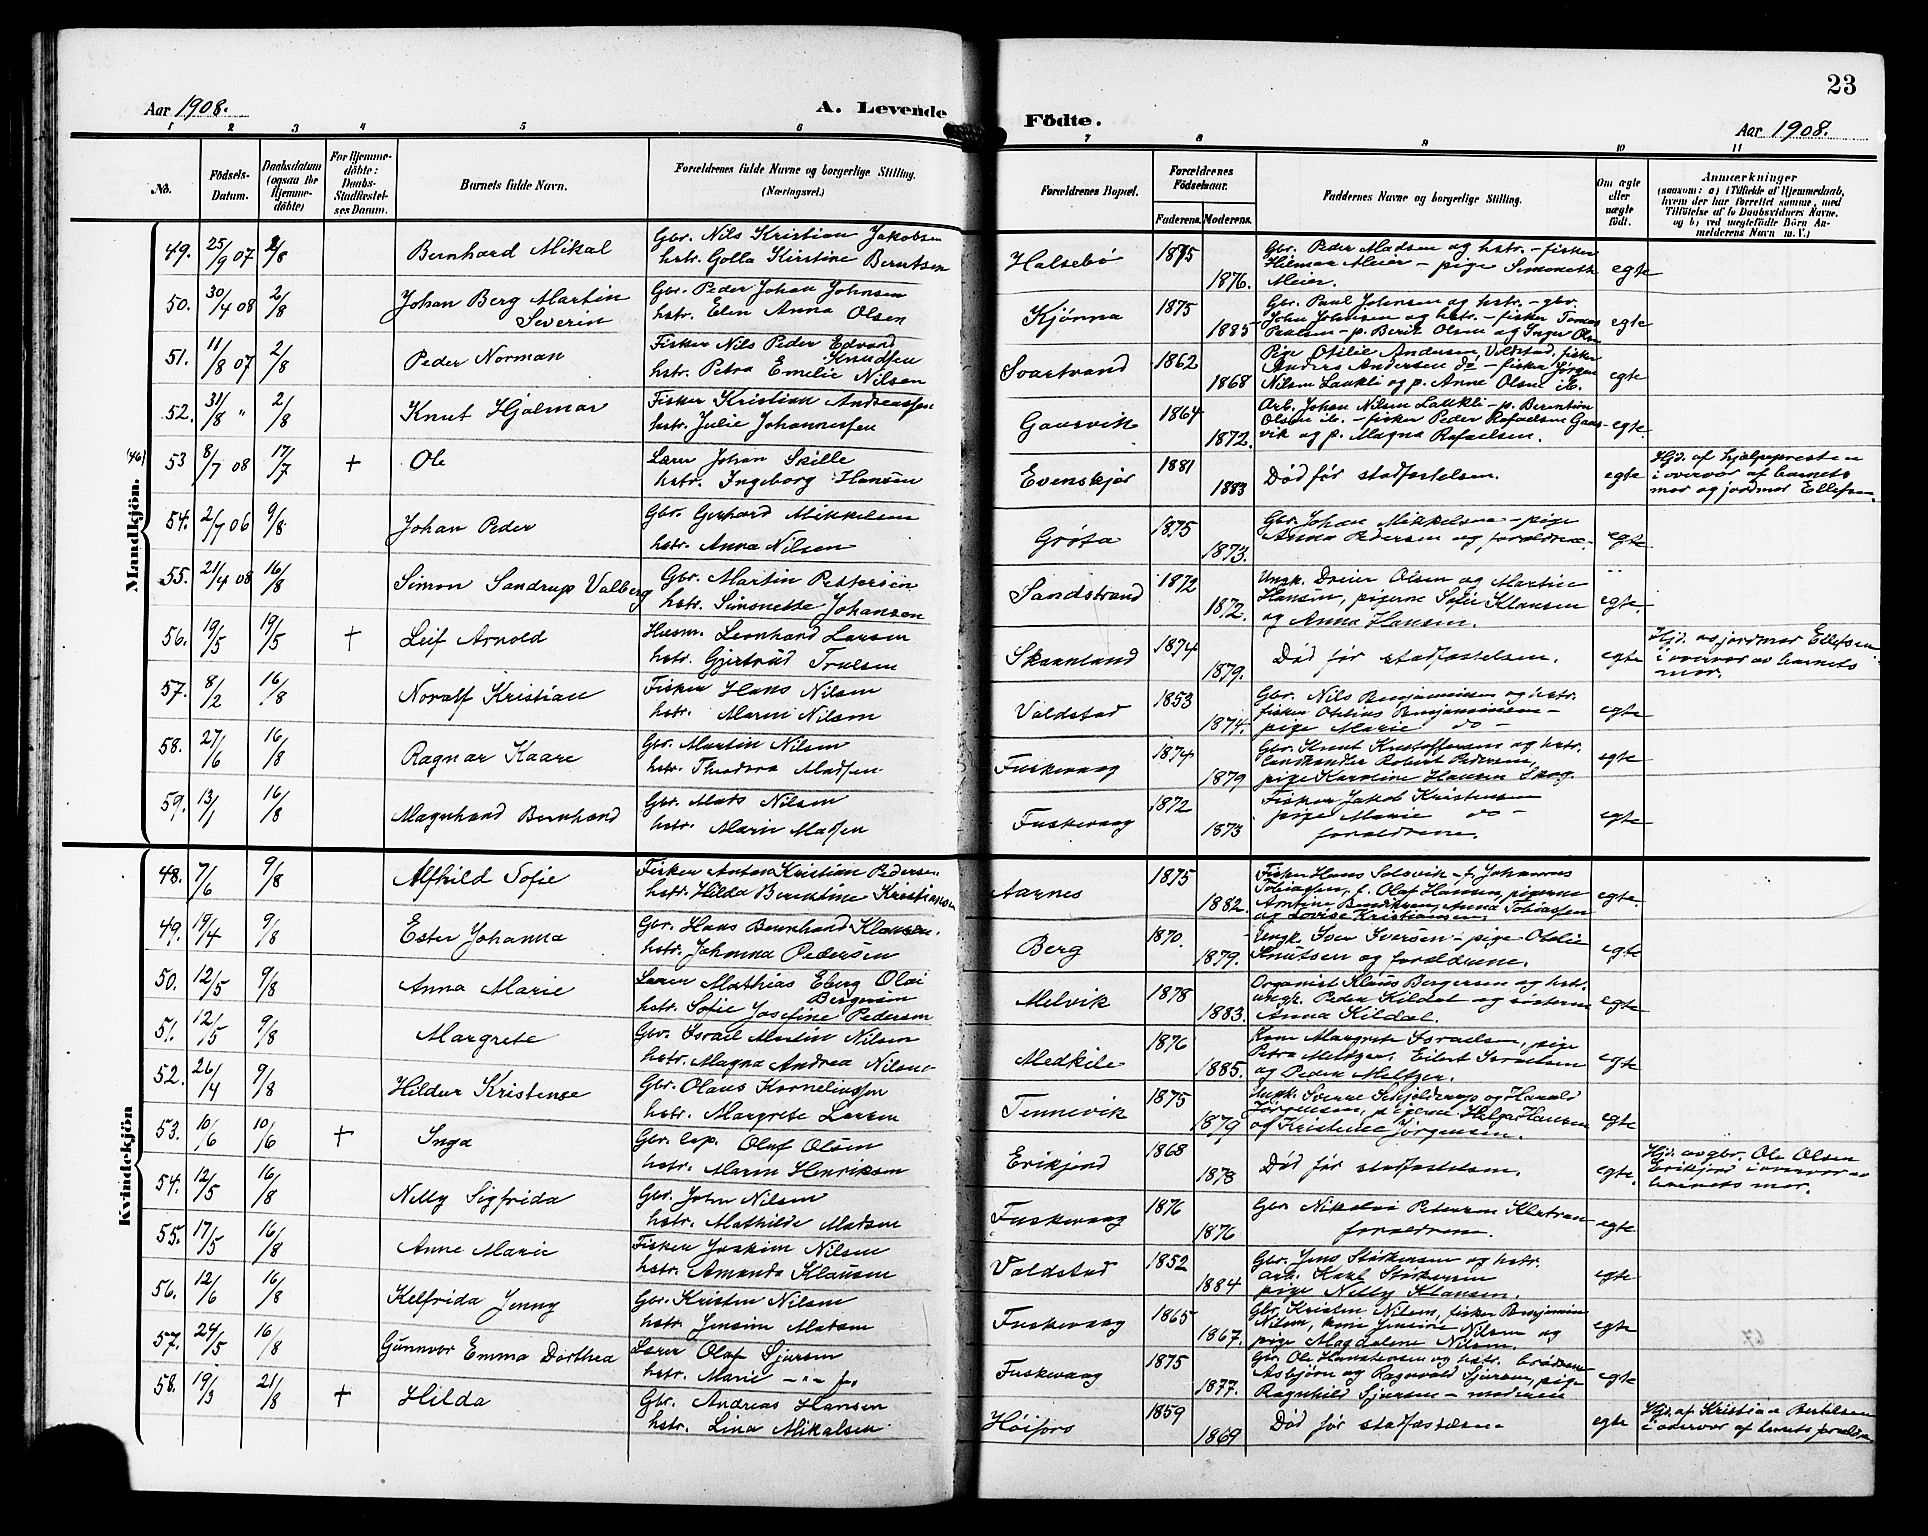 23
Aar 1908.
A. Levende Födte.
Aar 1908.
1 2 3 4 5 6 7 8 9 10 11
No.
Födsels-Datum.
Daabsdatum (ogsaa for Hjemme-döbte)
For Hjemme-döbte: Daabs-Stadfæstel-ses Datum.
Barnets fulde Navn.
Forældrenes fulde Navne og borgerlige Stilling. (Næringsvei.)
Forældrenes Bopæl.
Forældrenes Födselsaar.
Faderens. Moderens.
Faddernes Navne og borgerlige Stilling.
Om ægte eller uægte födt.
Anmærkninger
(saasom: a) i Tilfælde af Hjemmedaab, hvem der har forrettet samme, med Tilföielse af to Daabsvidners Navne, og b) ved uægtefödte Börn Anmelderens Navn m. V.)
Mandkjön.
(46)
49. 25/9 07 2/8 Bernhard Mikal Gbr. Nils Kristian Jakobsen
hstr. Golla Kirstine Berntsen Halsebø 1875 1876. Gbr. Peder Madsen og hstr. - fisker
Hilmar Meier - pige Simonette
Meier. egte
50. 30/4 08 2/8 Johan Berg Martin
Severin Gbr. Peder Johan Johnsen
hstr. Elen Anna Olsen Kjønna 1875 1885 Gbr. Paul Johensen og hstr. - gbr.
John Johnsen og hstr. - fisker Tomas
Paulsen - p. Berit Olsen og Inger Olsen egte
51. 11/8 07 2/8 Peder Norman Fisker Nils Peder Edvard
Knudsen
hstr. Petra Emelie Nilsen Svartvand 1862 1868 Pige Otilie Andersen, Voldstad, fisker
Anders Andersen do - fisker Jørgen
Nilsen Laukli og p. Anne Olsen ib. egte
52. 31/8 " 2/8 Knut Hjalmar Fisker Kristian Andreassen
hstr. Julie Johannessen Gausvik 1864 1872. Arb. Johan Nilsen Laukli - p. Berentine
Olsen ib. - fisker Peder Rafaelsen Gausvik
og p. Magna Rafaelsen. egte.
53 8/7 08 17/7 + Ole Lærer Johan Skille
hstr. Ingeborg Hansen Evenskjær 1881 1883 Død før stadfæstelsen. egte Hjd. af hjælpepresten
i overvær af barnets
mor og jordmor Ellefsen.
54. 2/7 06 9/8 Johan Peder Gbr. Gerhard Mikkelsen
hstr. Anna Nilsen Grøfa 1875 1873. Gbr. Johan Mikkelsen - pige
Anna Pedersen og forældrene. egte
55. 21/4 08 16/8 Simon Sandrup Valberg Gbr. Martin Pettersen
hstr. Simonette Johansen Sandstrand 1872 1872. Ungk. Dreier Olsen og Martin
Hansen, pigerne Sofie Klausen
og Anna Hansen. egte
56. 19/5 19/5 + Leif Arnold Husm. Leonhard Larsen
hstr. Gjertrud Trulsen Skaanland 1874 1879. Død før stadfæstelsen. egte Hjd. av jordmor Ellefsen
i overvær av barnets
mor.
57. 8/2 16/8 Noralf Kristian Fisker Hans Nilsen
hstr. Marie Nilsen Voldstad 1853 1874. Gbr. Nils Benjaminsen og hstr.
fisker Otelius Benjaminsen -
pige Marie do - egte
58. 27/6 16/8 Ragnar Kaare Gbr. Martin Nilsen
hstr. Theodora Madsen Fuskevaag 1874 1879 Gbr. Knut Kristoffersens og hstr.
landhandler Robert Pedersen,
pige Karoline Hansen Skog. egte
59. 13/1 16/8 Magnhard Bernhard Gbr. Mats Nilsen
hstr. Marie Madsen Fuskevaag 1872 1873 Fisker Jakob Kristensen
pige Marie do -
forældrene. egte
Kvindekjön
48. 7/6 9/8 Alfhild Sofie Fisker Anton Kristian Pedersen
hstr. Hilda Berntine Kristiansen Aarnes 1875 1882. Fisker Hans Solsvik - f. Johannes
Tobiassen, f. Olaf Hansen, pigerne
Arntine Bendiksen, Anna Tobiassen
og Lovise Kristiansen. egte.
49. 19/4 9/8 Ester Johanna Gbr. Hans Bernhard Klausen.
hstr. Johanna Pedersen Berg 1870. 1879. Ungk. Iver Iversen - pige Otelie
Knutsen og forældrene. egte
50. 12/5 9/8 Anna Marie Lærer Mathias Eberg Olai
Bergersen
hstr. Sofie Josefine Pedersen Melvik 1878 1883. Organist Klaus Bergersen og hst.
ungk. Peder Kildal og søsteren
Anna Kildal. egte
51. 12/5 9/8 Margrete Gbr. Israel Martin Nilsen
hstr. Magna Andrea Nilsen Medkile 1876 1885. Kone Margrete Israelsen, pige
Petra Meltzer, Eilert Israelsen
og Peder Meltzer. egte
52. 26/4 9/8 Hildur Kristense Gbr. Olaus Korneliussen
hstr. Margrete Larsen Tennevik 1875 1879 Ungk. Sverre Schjelderup og Harald
Jørgensen, pigerne Helga Hansen
og Kristense Jørgensen. egte
53. 10/6 10/6 + Inga Gbr. Olaf Olsen
hstr. Marie Henriksen Erikjord 1868 1878 Død før stadfæstelsen. egte. Hjd. av gbr. Ole Olsen
Erikjord i overvær av
barnets mor.
54. 12/5 16/8 Nelly Sigfrida Gbr. John Nilsen
hstr. Mathilde Madsen Fuskevaag 1876 1876 Gbr. Nikolai Petersen
forældrene. egte
55. 17/5 16/8 Anne Marie Fisker Joakim Nilsen
hstr. Amanda Klausen Voldstad 1852 1884 Gbr. Jens Størkersen og hstr.
arb. Karl Størkersen
pige Nelly Klausen. egte
56. 12/6 16/8 Kelfrida Jenny Gbr. Kristen Nilsen
hstr. Jensine Madsen Fuskevaag 1865 1867. Gbr. Kristen Nilsen, fisker Benjamin
Nilsen, kone Jensine Nilsen og
pige Magdalene Nilsen. egte
57. 24/5 16/8 Gunnvor Emma Dorthea Lærer Olaf Sjursen
hstr. Marie - " - Fuskevaag 1875 1877. Gbr. Ole Hanstensen og hstr. brødrene
Asbjørn og Ragnvald Sjursen, pige
Ragnhild Sjursen - moderen egte
58. 19/3 21/8 + Hilda Gbr. Andreas Hansen
hstr. Lina Mikalsen Høifors 1859 1869 Død før stadfæstelsen egte Hjd. af Kristian Bertelsen
i overvær af barnets forældre.